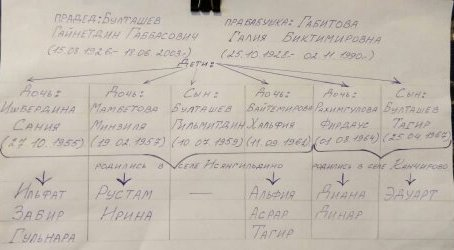 ПРАДЕД: БУЛТАШЕВ
ГАЙНЕТДИН ГАББАСОВИЧ
(15.08.1926 - 18.06 2003г.)
ПРАБАБУШКА: ГАБИТОВА
ГАЛИЯ БИКТИМИРОВНА
(25.10.1928 - 02 11 1990г.)
ДЕТИ:
ДОЧЬ:
ИШБЕРДИНА
САНИЯ
(27.10.1955)
ДОЧЬ:
МАМБЕТОВА
МИНЗИЛЯ
(19 02 1957)
СЫН:
БУЛТАШЕВ
ГИЛЬМИТДИН
(10 07 1959)
ДОЧЬ:
БАЙТЕМИРОВА
ХАЛЬФИЯ
(11.09 1961)
ДОЧЬ:
РАХИМГУЛОВА
ФИРДАУС
(01 03 1964)
СЫН:
БУЛТАШЕВ
ТАГИР
(25.04.1967)
РОДИЛИСЬ В СЕЛЕ ИСЯНГИЛЬДИНО
РОДИЛИСЬ В СЕЛЕ КАНЧИРОВО
ИЛЬФАТ
ЗАБИР
ГУЛЬНАРА
РУСТАМ
ИРИНА
—
АЛЬФИЯ
АСХАР
ТАГИР
ДИАНА
ДИНАР
ЭДУАРТ